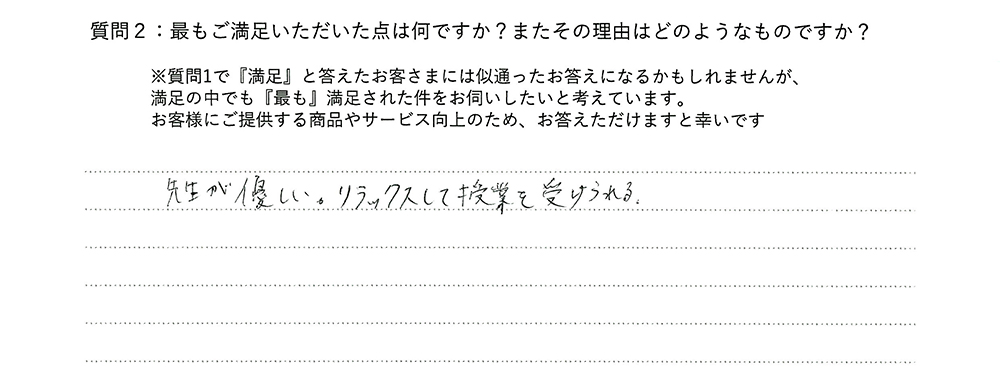 質問２：最もご満足いただいた点は何ですか？またその理由はどのようなものですか？
※質問1で『満足』と答えたお客さまには似通ったお答えになるかもしれませんが、
満足の中でも『最も』満足された件をお伺いしたいと考えています。
お客様にご提供する商品やサービス向上のため、お答えただけますと幸いです
先生が優しい。リラックスして授業を受けられる。